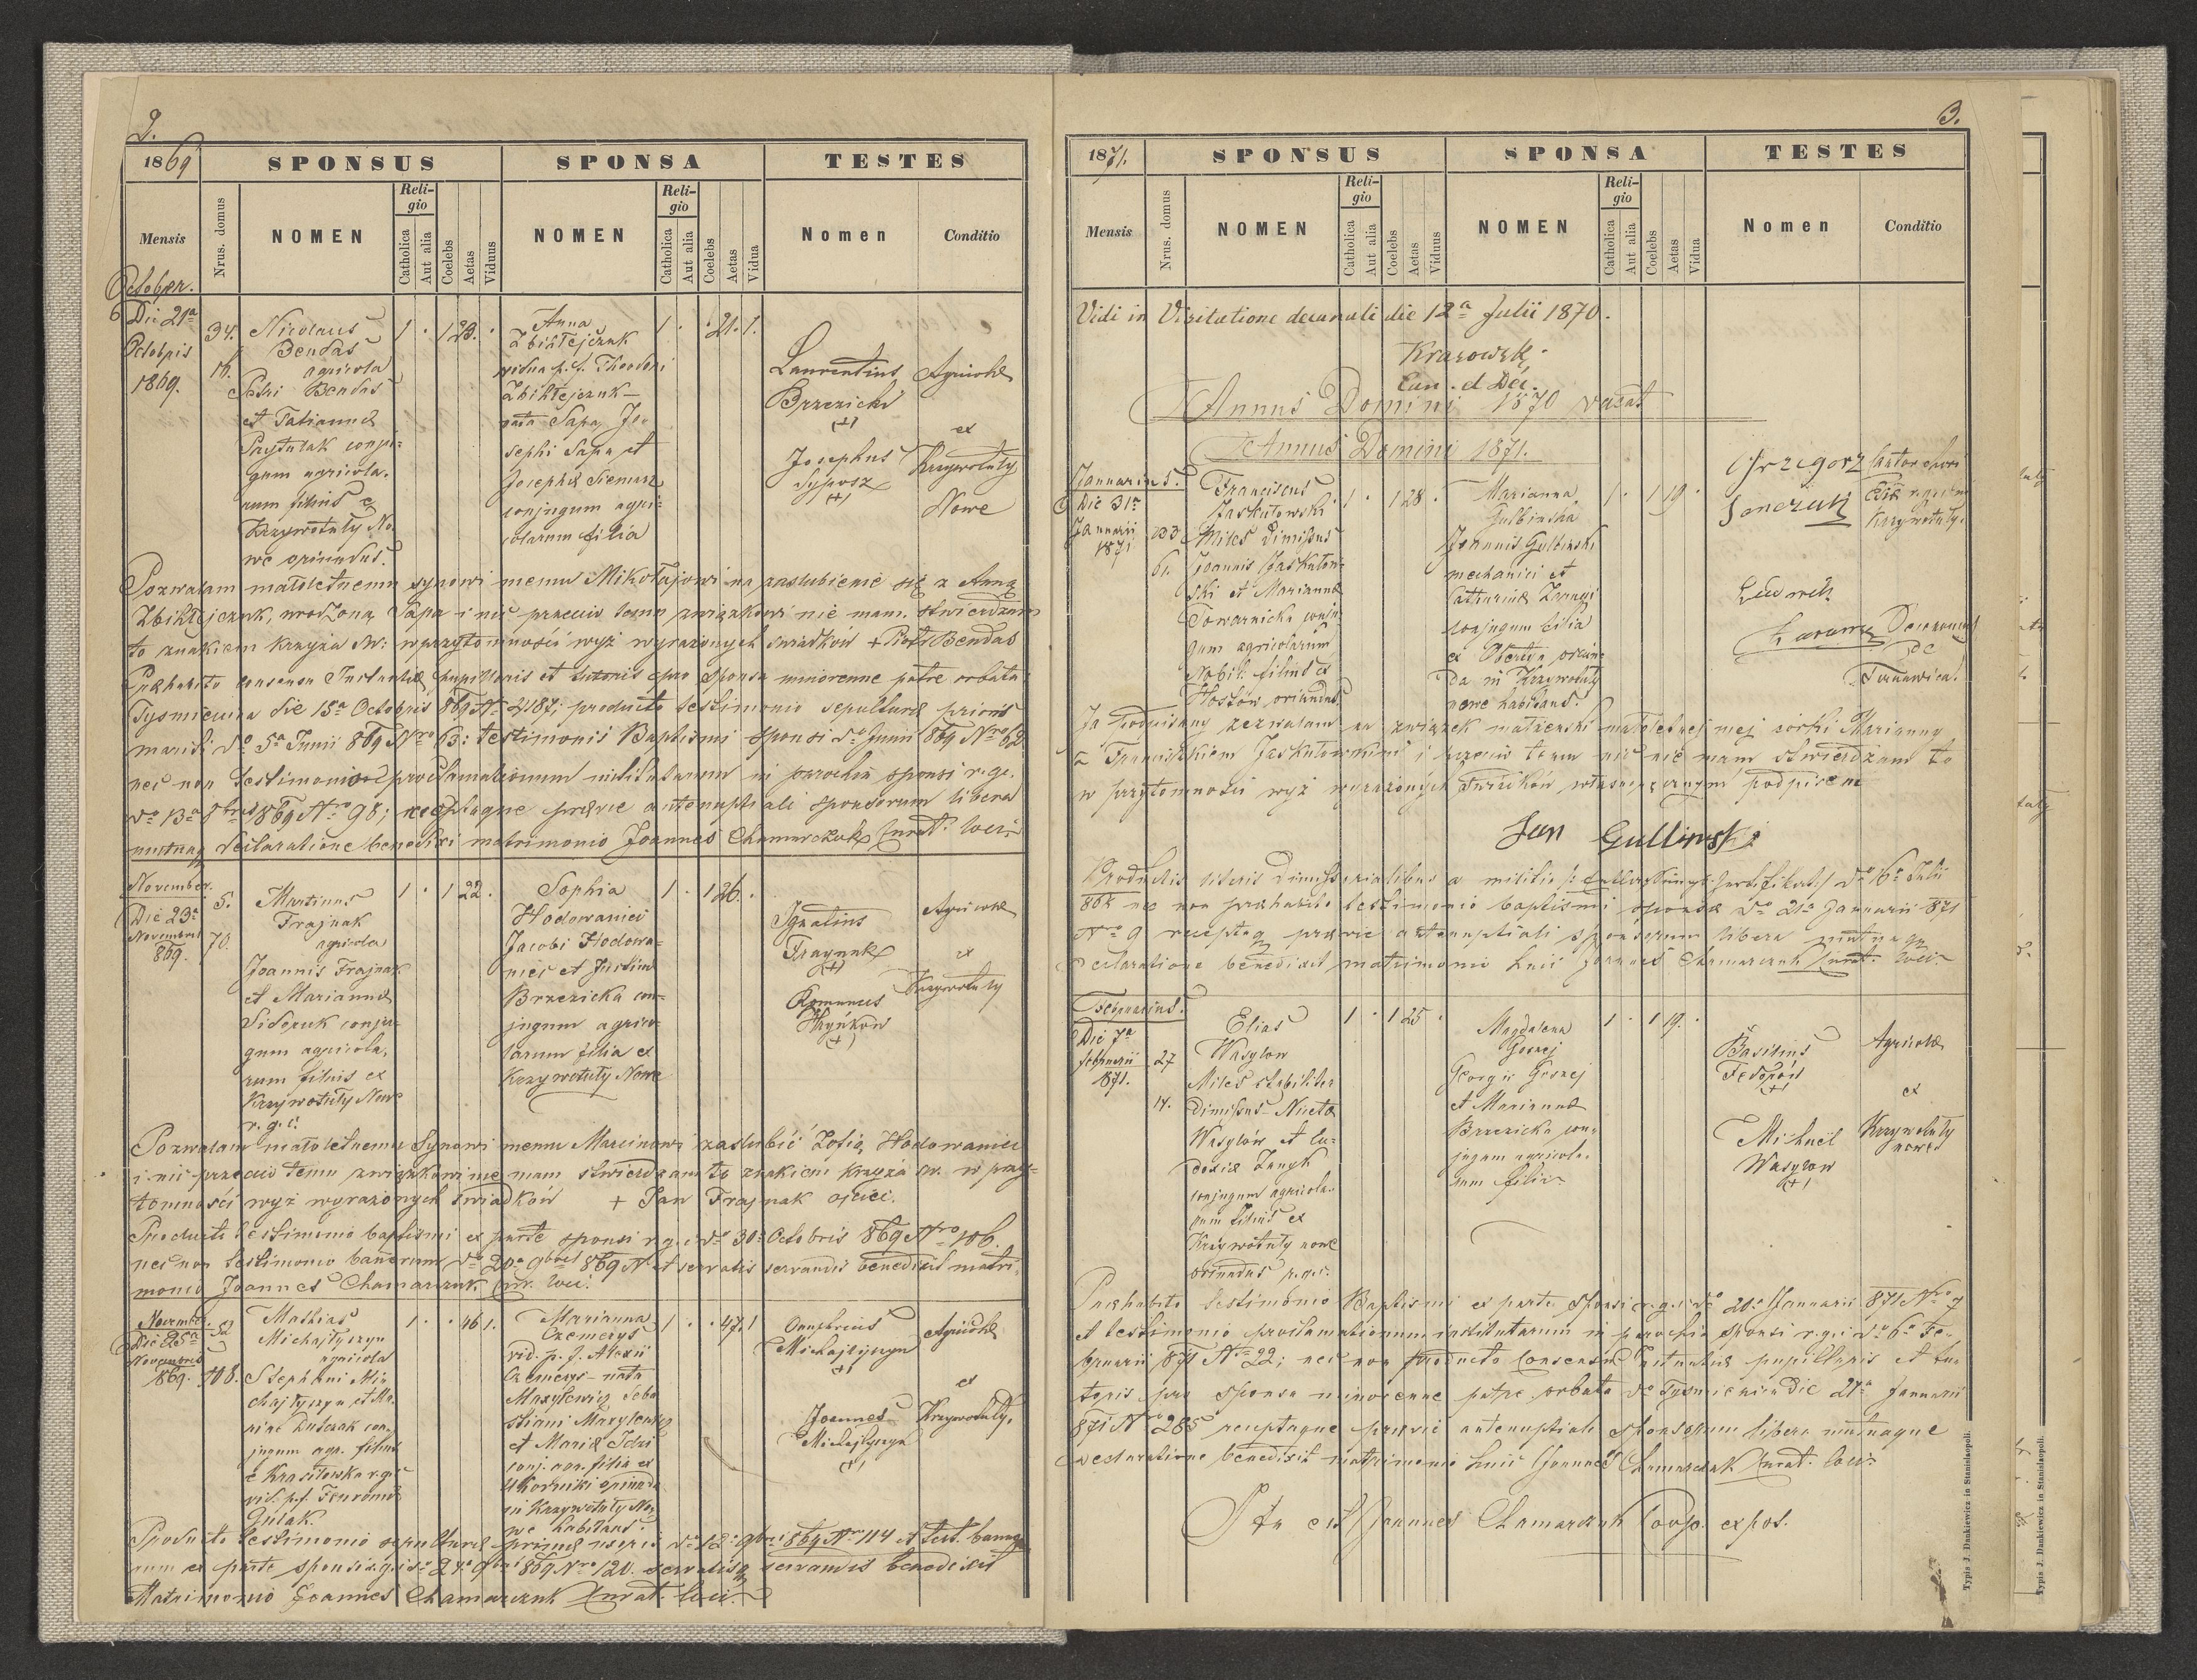 2.
1869
SPONSUS
SPONSA
TESTES
Mensis
Nrus. domus
NOMEN
Religio
Catholica
Aut alia
Coelebs
Aetas
Viduus
NOMEN
Religio
Catholica
Aut alia
Coelebs
Aetas
Vidua
Nomen
Conditio
October.
Die 21a
Octobris
1869.
34.
Nicolaus
Bendas
agricola
Petri Bendas
et Tatianna
conju=
gum agricola-
rum filius e
Krzywotuły No-
we oriundus.
1 . 1 23 .
Anna
Zbihlejczuk
vidua p. f. Theodori
Zbihlejczuk
nata Sapa Jo-
sephi Sapa et
Josepha
conjugum agri=
colarum filia
1 . . 21. 1.
Laurentius
Brzezicki
(+)
Josephus
(+)
Agricolae
ex
Krzywotuły
Nowe
Pozwalam małoletniemu synowi memu Mikołajowi na zaslubienie się z Anną
Zbihlejczuk, urodzoną Sapa i nic przeciw temu związkowi nie mam, stwierdzam
to znakiem krzyża św: w przytomności wyż wyrażonych świadków + Piotr Bendas
Praehabito consensu pupillaris et tutoris pro sponsa minorenne patre orbata
Tysmienica die 15a Octobris 869 N 2487; producto testimonio sepulturae prioris
mariti do 5a Junii 869 Nro 63: testimonii Baptismi sponsi do Junii 869 Nro 62
nec non testimonio proclamationum institutarum in parochia sponsi r. gr.
do 13a 869 Nro 98; receptaque praevie antenuptiali sponsorum libera
mutuaq declaratione benedixi matrimonio Joannes Chamarczuk Curat. loci
November.
Die 23a
Novembris
869.
5.
70.
Martinus
Frajnak
agricola
Joannis Frajnak
et Marianna
conju-
gum agricola-
rum filius ex
Krzywotuły Nowe
r. g. c.
1 . 1 22 .
Sophia
Hodowaniec
Jacobi Hodowa-
niec et
Brzezicka con-
jugum agrico-
larum filia ex
Krzywotuły Nowe
1 . 1 26. .
Ignatius
Fraynak
(+)
Romanus
Hryńków
(+)
Agricolae
ex
Krzywotuły
Pozwalam małoletniemu Synowi memu Marcinowi zaslubić Zofię Hodowaniec
i nic przeciw temu związkowi nie mam stwierdzam to znakiem krzyża św. w przy-
tomności wyż wyrażonych świadków + Jan Frajnak ojciec.
Producto testimonio baptismi ex parte sponsi r. g. c. do 30a Octobris 869 Nro 106.
nec non testimonio bannorum do 20a 9bris 869 N et servatis servandis benedixit matri-
monio Joannes Chamarczuk Cur. loci.
Novemb.
Die 25a
Novembris
869.
52
108.
Mathias
Michajłyszyn
agricola
Stephani Mi-
chajłyszyn et Ma-
con-
jugum agr. filius
e Krasiłowka r. g. c.
vid. p. f.
1 . . 46 1.
Marianna
Czemerys
vid. p. f. Alexii
Czemerys nata
Maxylewicz Seba
stiani Maxylewicz
et Maria
conj. agr. filia ex
Ukorniki oriunda
in Krzywotuły No-
we habitans.
1 . . 47. 1
Onuphrius
Michajłyszyn
(+)
Joannes
Michajłyszyn
(+)
Agricolae
ex
Krzywotuły.
Producto testimonio sepulturae primae uxoris do 12a 9bris 869 Nr 114 et test. banno-
rum ex parte sponsi r. g. c. do 24a 9bri 869 Nro 120. servatisq servandis benedixit
Matrimonio Joannes Chamarczuk Curat. loci.
3.
1871.
SPONSUS
SPONSA
TESTES
Mensis
Nrus. domus
NOMEN
Religio
Catholica
Aut alia
Coelebs
Aetas
Viduus
NOMEN
Religio
Catholica
Aut alia
Coelebs
Aetas
Vidua
Nomen
Conditio
Vidi in Visitatione decanali die 12a Julii 1870.
Krasowski
Can. et Dec.
Annus Domini 1870 vacat
Annus Domini 1871.
Januarius.
Die 31a
Januarii
1871
61.
Franciscus
Jaskulowski
Miles dimissus
Joannis Jaskulow-
ski et Marianna
Towarnicka conju-
gum agricolarum
Nobil. filius ex
Hostów oriundus
1 . 1 28 .
Marianna
Gulbinska
Joannis Gulbinski
mechanici et
Catharina
conjugum filia
ex Obertyn oriun-
da in Krzywotuły
nowe habitans.
1 . 1 19 .
Grzegorz
Senczuk
Ludwik
Cantor
Krzywotuły.
de
Tarnawica.
Ja podpisany zezwalam na związek małżenski małoletniej mej córki Marianny
z Franciszkiem Jaskulowskim i przeciw temu nic nie mam stwierdzam to
w przytomności wyż wyrażonych świadków własnoręcznym podpisem
Jan Gulbinski
Productis literis Dimissorialibus a militie do 16a Julii
868 nec non praehabito testimonio baptismi sponsae do 21a Januarii 871
Nro 9 receptaq praevie antenuptiali sponsorum libera mutuaq
declaratione benedixit matrimonio huic Joannes Chamarczuk Curat. loci
Februarius.
Die 7a
februarii
871.
27
14.
Elias
Wasylow
Miles stabiliter
dimissus Nicetae
Wasylów et Eu-
doxia
conjugum agricola-
rum filius ex
Krzywotuły nowe
oriundus r. g. c.
1 . 1 25 .
Magdalena
Georgii
et Marianna
Brzezicka con-
jugum agricola-
rum filia
1 . 1 19. .
Basilius
Fedorów
(+)
Michael
Wasylow
(+)
Agricolae
ex
Krzywotuły
nowe
Praehabito testimonio Baptismi ex parte sponsi r. g. c. do 20a Januarii 871 Nro 7
et testimonio proclamationum institutarum in parochia sponsi r. g. c. do 6a Fe-
bruarii 871 Nro 22; nec non producto consensu pupillaris et tu-
toris pro sponsa minorenne patre orbata do Tysmienica die 27a Januarii
871 Nro 285 receptaque praevie antenuptiali sponsorum libera mutuaque
declaratione benedixit matrimonio huic Joannes Chamarczuk Curat. loci
Ita est Joannes Chamarczuk Coop. expos.
Typis J. Dankiewicz in Stanislaopoli.
Typis J. Dankiewicz in Stanislaopoli.